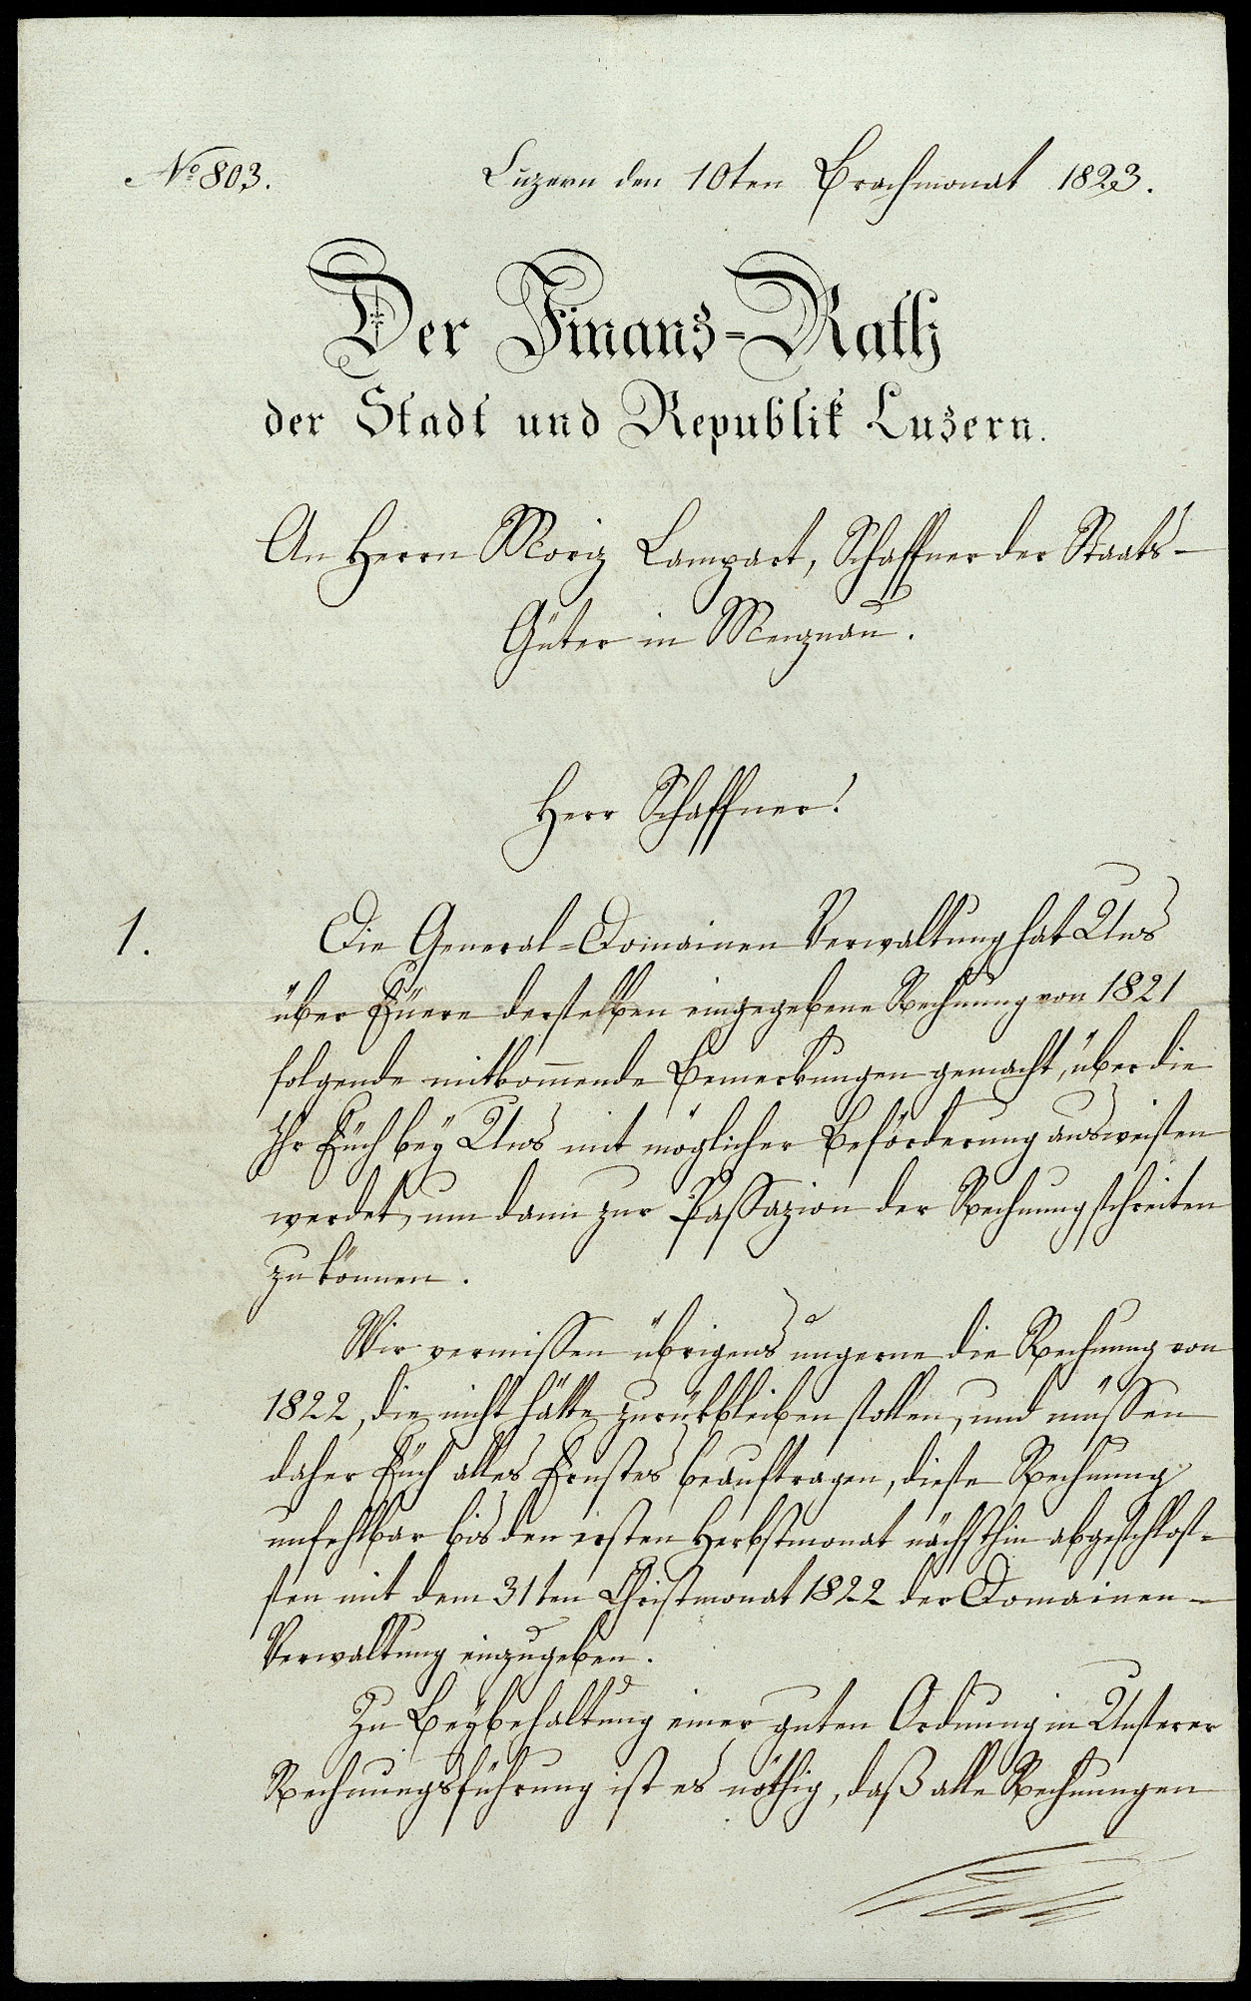 No 803. Luzern den 10ten Brachmonat 1823.
Der Finanz-Rath
der Stadt und Republik Luzern.
An Herrn Moriz Lampart, Schaffner der Staats-
Güter in Menznau.
Herr Schaffner!
1. Die General-Domainen Verwaltung hat Uns
über Eüere derselben eingegebene Rechnung von 1821
folgende mitkommende Bemerkungen gemacht, über die
Ihr Eüch beÿ Uns mit möglicher Beförderung ausweisen
werdet, um dann zur Passazion der Rechnung schreiten
zu können.
Wir vermissen übrigens ungerne die Rechnung von
1822, die nicht hätte zurükbleiben sollen, und müssen
daher Eüch alles Ernstes beauftragen, diese Rechnung
unfehlbar bis den ersten Herbstmonat nächsthin abgeschlos-
sen mit dem 31ten Christmonat 1822 der Domainen-
Verwaltung einzugeben.
Zu Beÿbehaltung einer guten Ordnung in Unserer
Rechnungsführung ist es nöthig, daß alle Rechnungen